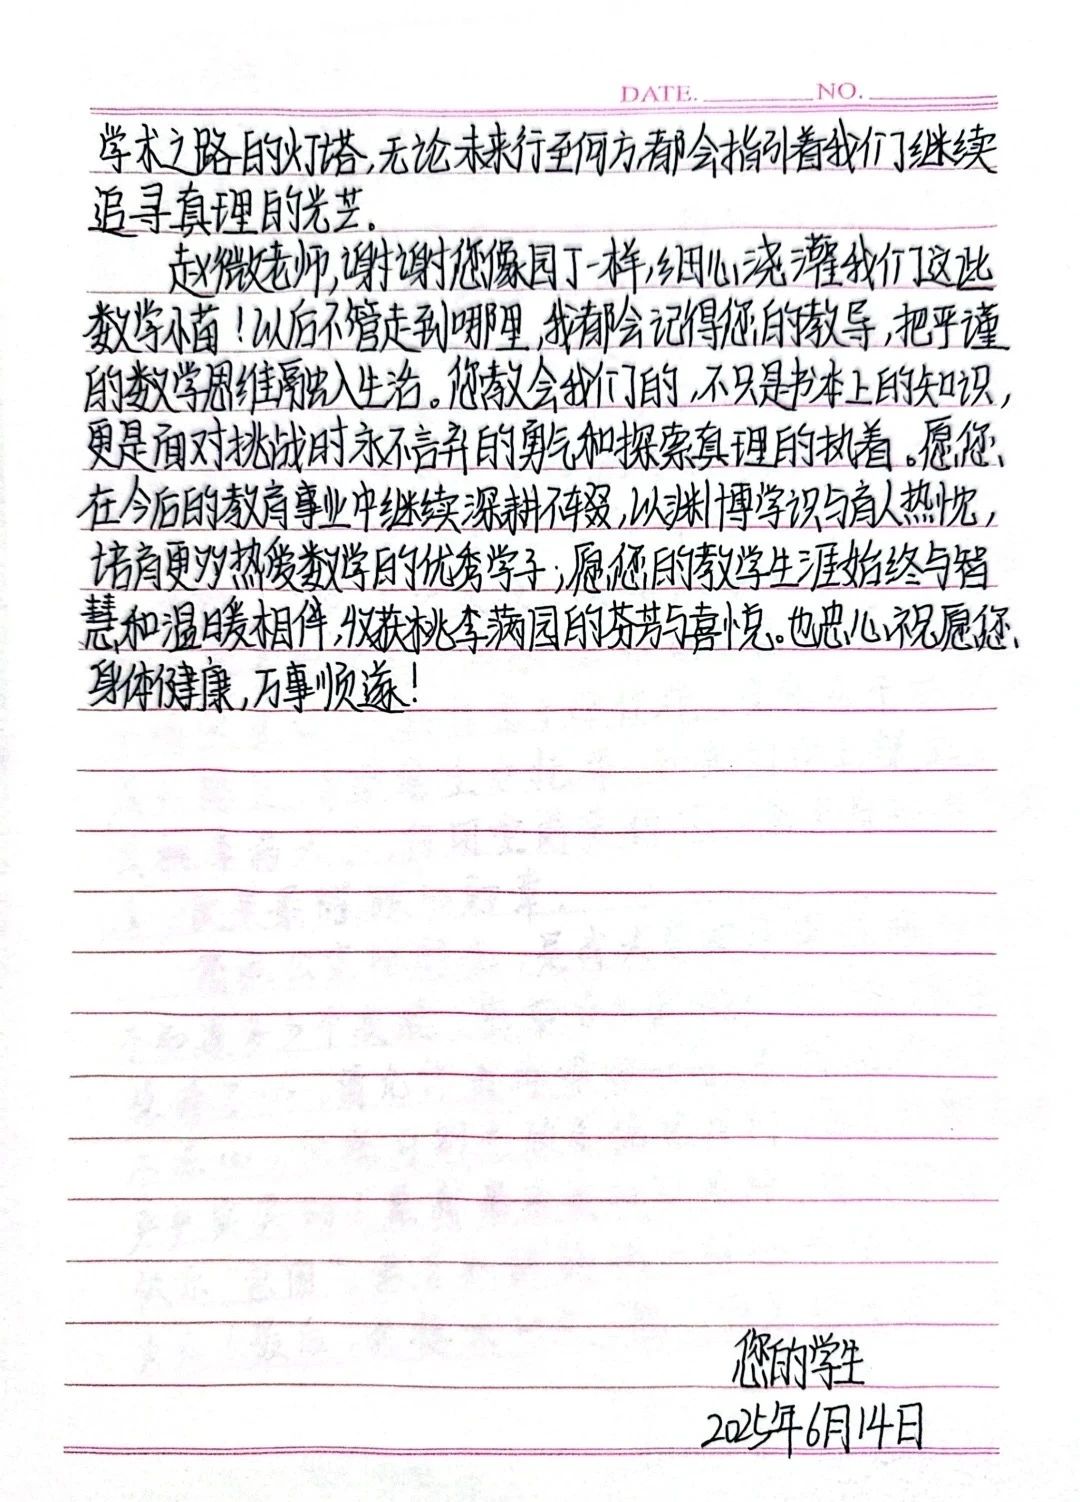 DATE. NO.
学术之路的灯塔,无论未来行至何方,都会指引着我们继续
追寻真理的光芒.
赵微老师,谢谢您像园丁一样,细心浇灌我们这些
数学小苗!以后不管走到哪里,我都会记得您的教导,把严谨
的数学思维融入生活。您教会我们的,不只是书本上的知识,
更是面对挑战时永不言弃的勇气和探索真理的执着。愿您
在今后的教育事业中继续深耕不辍,以渊博学识与育人热忱,
培育更多热爱数学的优秀学子;愿您的教学生涯始终与智
慧和温暖相伴,收获桃李满园的芬芳与喜悦。也忠心祝愿您
身体健康,万事顺遂!
您的学生
2025年6月14日